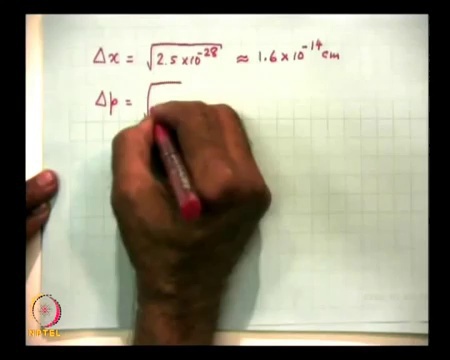 Δx = √2.5×10⁻²⁸ ≈ 1.6×10⁻¹⁴ cm
Δp = √
NPTEL